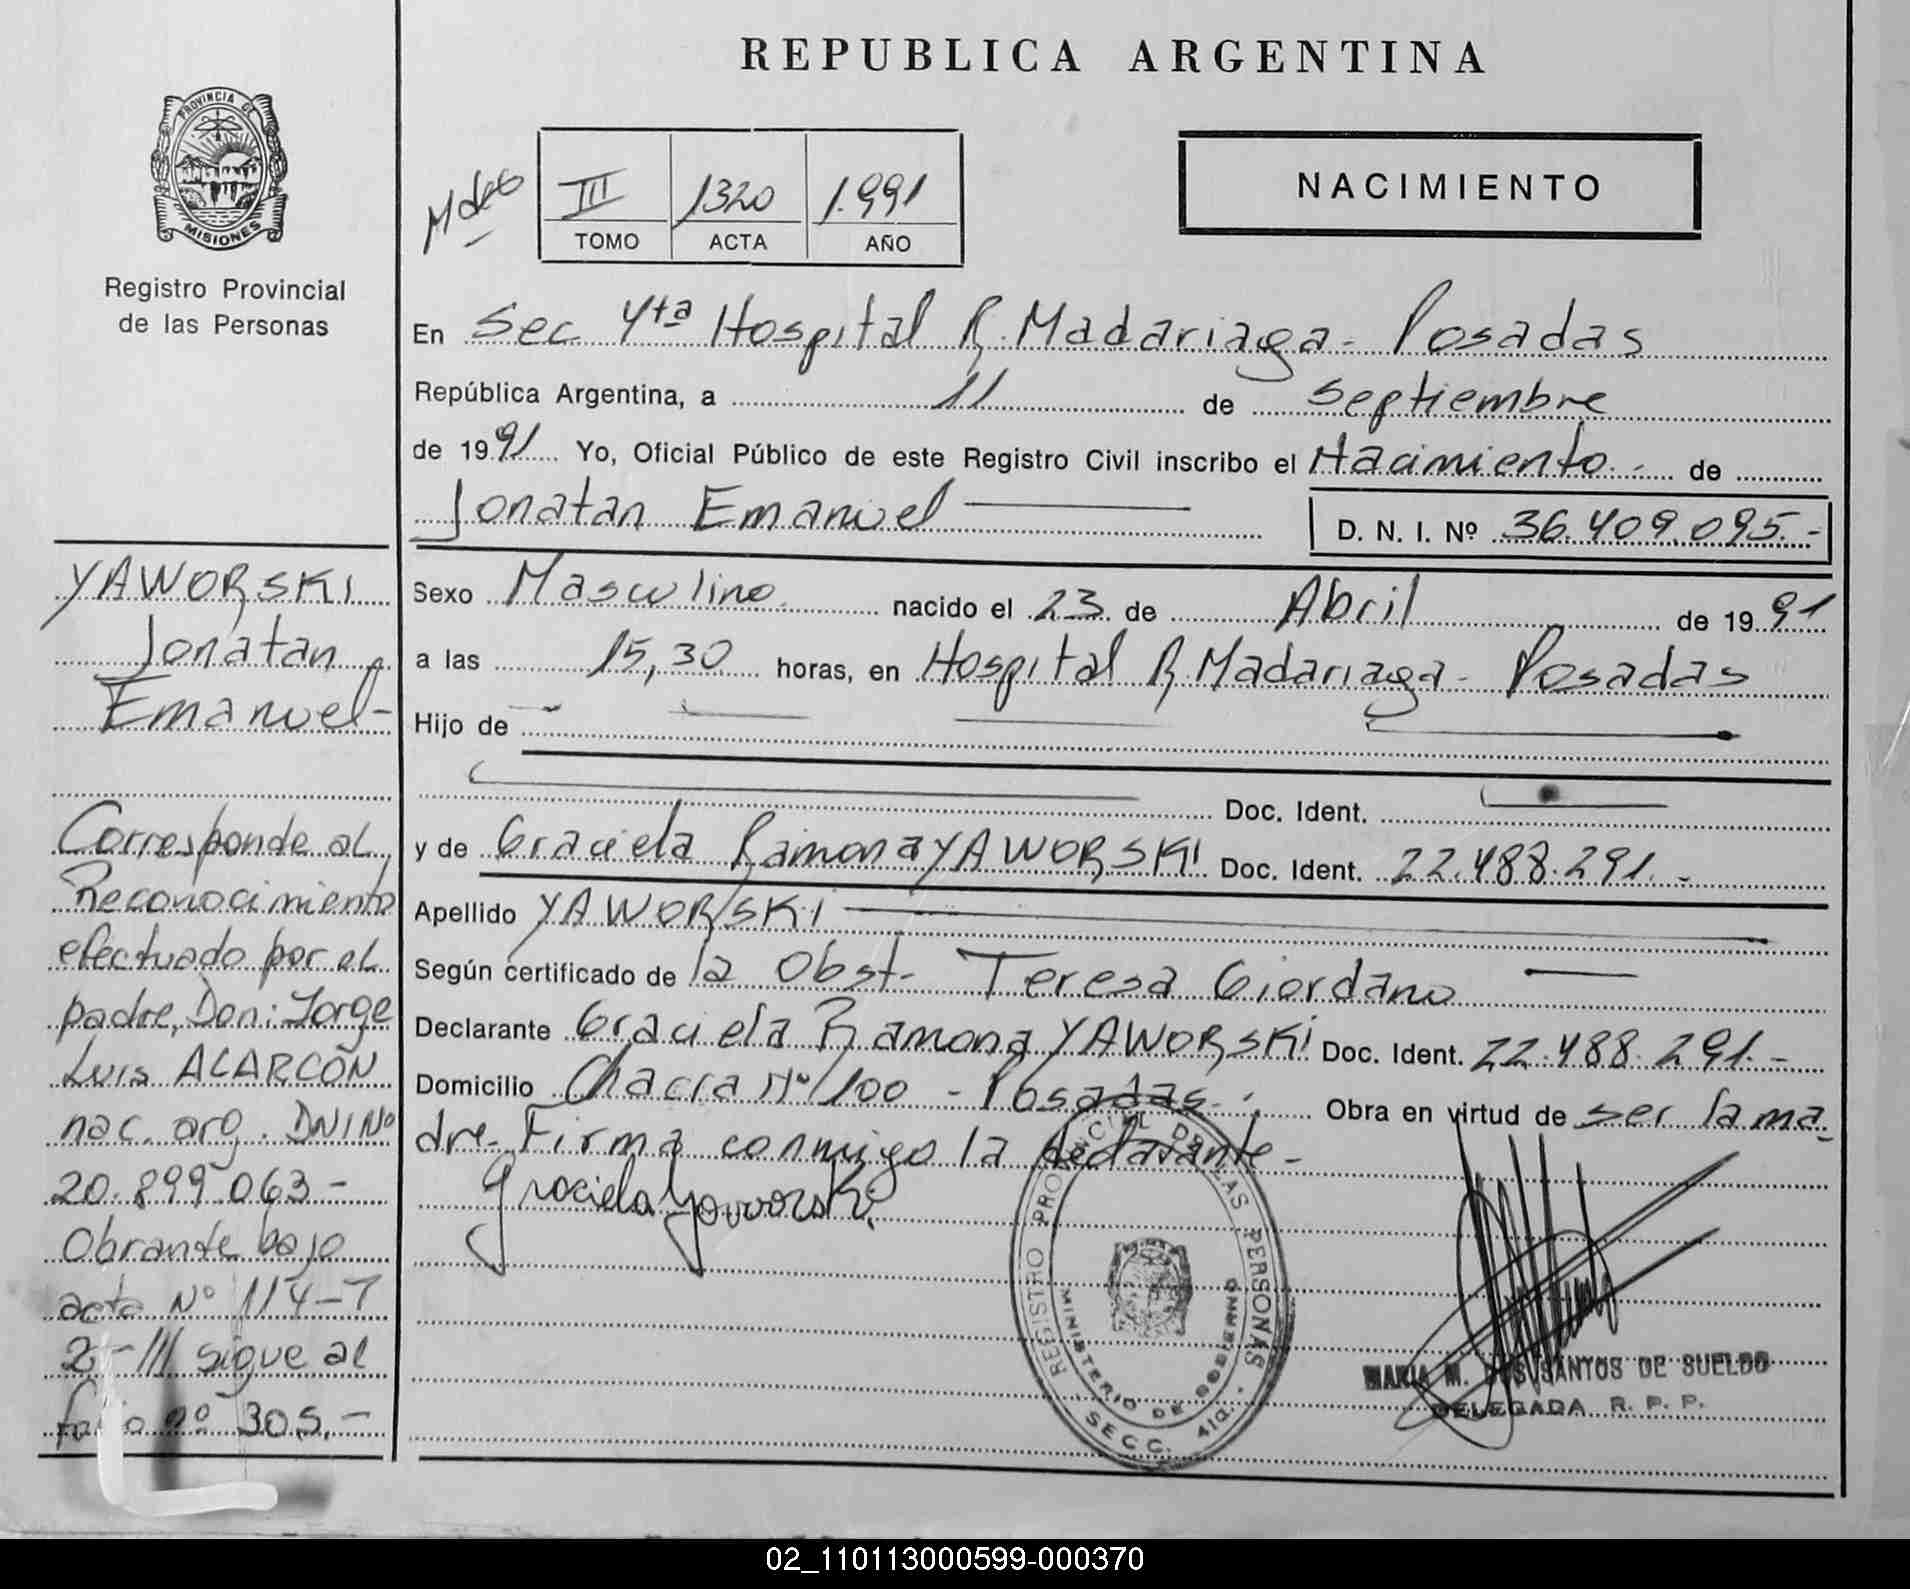 REPUBLICA ARGENTINA
PROVINCIA DE
MISIONES
Registro Provincial
de las Personas
III 1320 1.991
TOMO ACTA AÑO
NACIMIENTO
En Sec. 4ta Hospital R. Madariaga - Posadas
República Argentina, a 11 de Septiembre
de 1991 Yo, Oficial Público de este Registro Civil inscribo el Nacimiento.- de
Jonatan Emanuel
D. N. I. Nº 36.409.095.-
Sexo Masculino nacido el 23 de Abril de 1991
a las 15,30 horas, en Hospital R. Madariaga - Posadas
Hijo de
Doc. Ident.
y de Graciela Ramona YAWORSKI Doc. Ident. 22.488.291.-
Apellido YAWORSKI
Según certificado de la Obst. Teresa Giordano
Declarante Graciela Ramona YAWORSKI Doc. Ident. 22.488.291.-
Domicilio Chacra Nº 100 - Posadas.- Obra en virtud de ser la ma-
dre. Firma conmigo la declarante-
Graciela Yaworski.
REGISTRO PROVINCIAL DE LAS PERSONAS
MINISTERIO DE GOBIERNO
SECC. 4ta.
MARIA M. DOS SANTOS DE SUELDO
DELEGADA R. P. P.
YAWORSKI
Jonatan
Emanuel-
Corresponde al
Reconocimiento
efectuado por el
padre, Don: Jorge
Luis ALARCÓN
nac. arg. DNI Nº
20.899.063-
Obrante bajo
acta Nº 114-T
2-III sigue al
folio nº 305.-
02_110113000599-000370